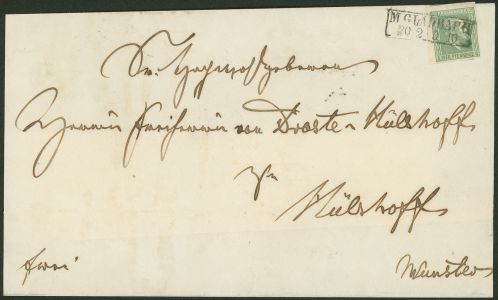 M. GLADBACH
20 2
Sr. Hochwohlgeboren
Herrn Freiherrn von Droste-Hülshoff
zu
Hülshoff
frei
Münster